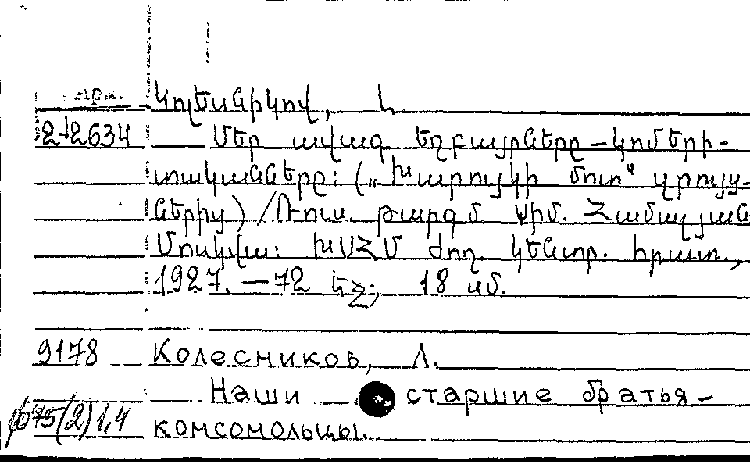 Կոլեսնիկով, Լ.
2-2634 Մեր ավագ եղբայրները – կոմերի-
տականները: („Խարույկի մոտ“ զրույց-
ներից) /Ռուս. թարգմ Սիմ. Համալյան
Մոսկվա: ԽՍՀՄ ժող. կենտր. հրատ.,
1927. – 72 եջ; 18 սմ.
9178 Колесников, Л.
Наши старшие братья –
комсомольцы.